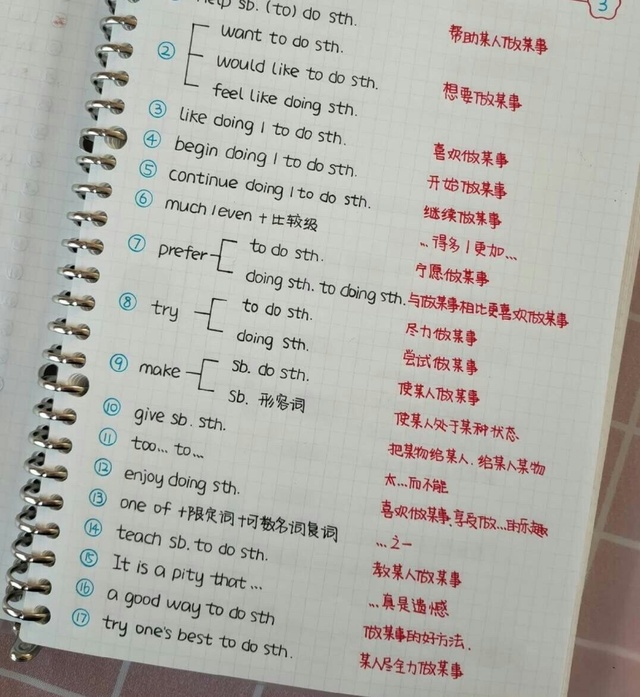 3
help sb. (to) do sth. 帮助某人做某事
② want to do sth.
would like to do sth. 想要做某事
feel like doing sth.
③ like doing / to do sth. 喜欢做某事
④ begin doing / to do sth. 开始做某事
⑤ continue doing / to do sth. 继续做某事
⑥ much / even + 比较级 …得多 / 更加…
⑦ prefer to do sth. 宁愿做某事
doing sth. to doing sth. 与做某事相比更喜欢做某事
⑧ try to do sth. 尽力做某事
doing sth. 尝试做某事
⑨ make sb. do sth. 使某人做某事
sb. 形容词 使某人处于某种状态
⑩ give sb. sth. 把某物给某人,给某人某物
⑪ too... to... 太...而不能
⑫ enjoy doing sth. 喜欢做某事,享受做...的乐趣
⑬ one of +限定词+可数名词复词 ...之一
⑭ teach sb. to do sth. 教某人做某事
⑮ It is a pity that... ...真是遗憾
⑯ a good way to do sth 做某事的好方法.
⑰ try one's best to do sth. 某人尽全力做某事